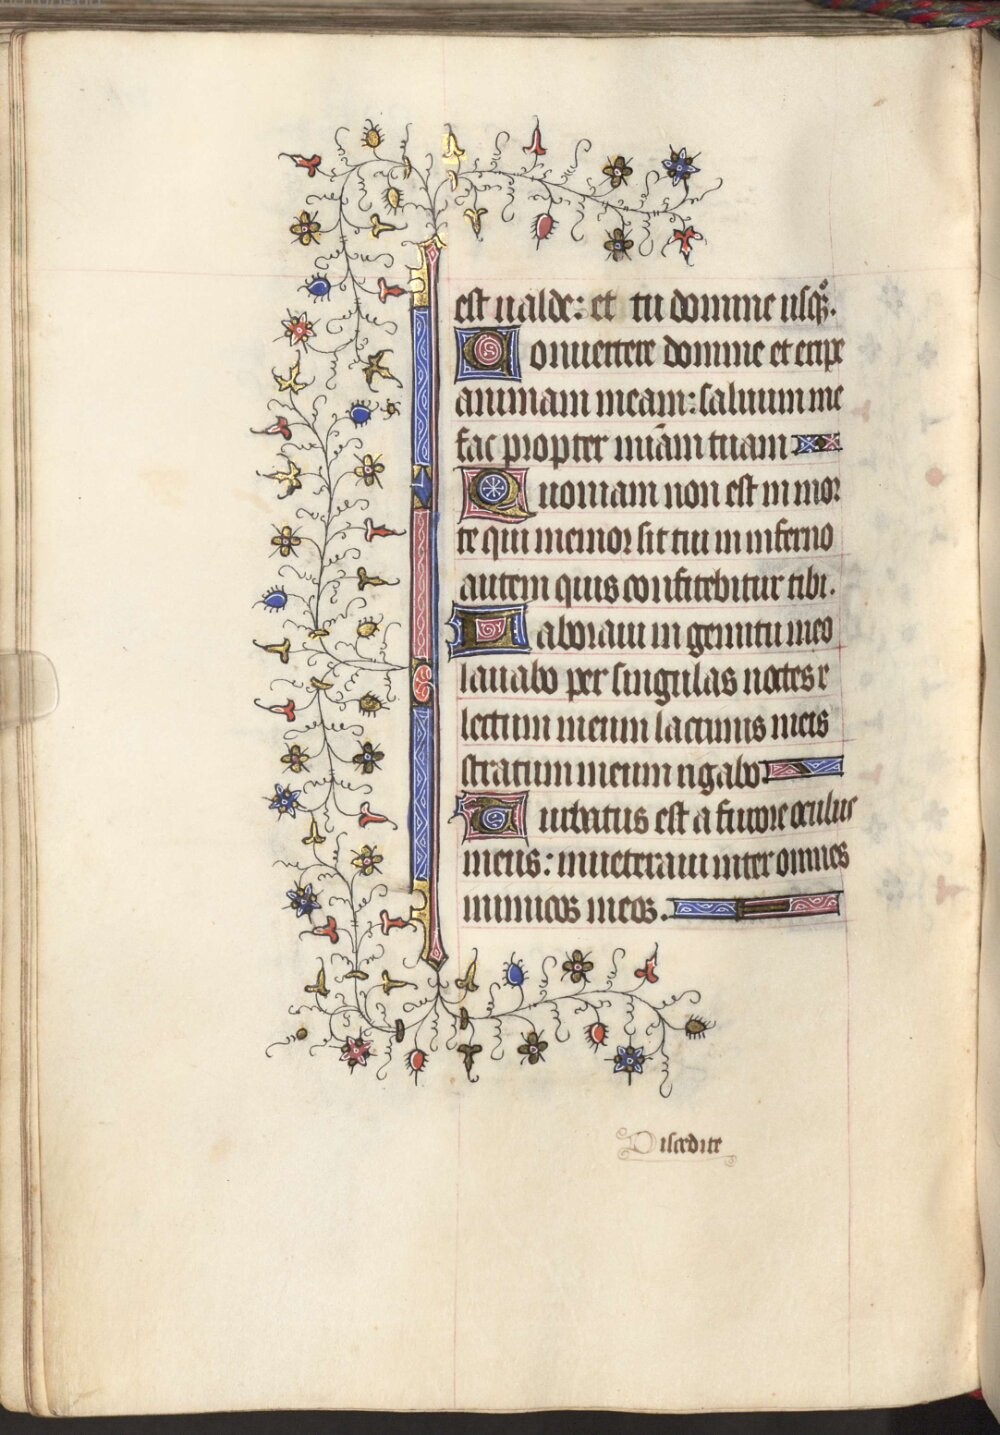 est ualde: et tu domine usq̃.
Conuertere domine et eripe
animam meam: saluum me
fac propter miãm tuam
Quoniam non est in mor
te qui memor sit tui in inferno
autem quis confitebitur tibi.
Laboraui in gemitu meo
lauabo per singulas noctes
lectum meum lacrimis meis
stratum meum rigabo
Turbatus est a furore oculus
meus: inueteraui inter omnes
inimicos meos.
Discedite